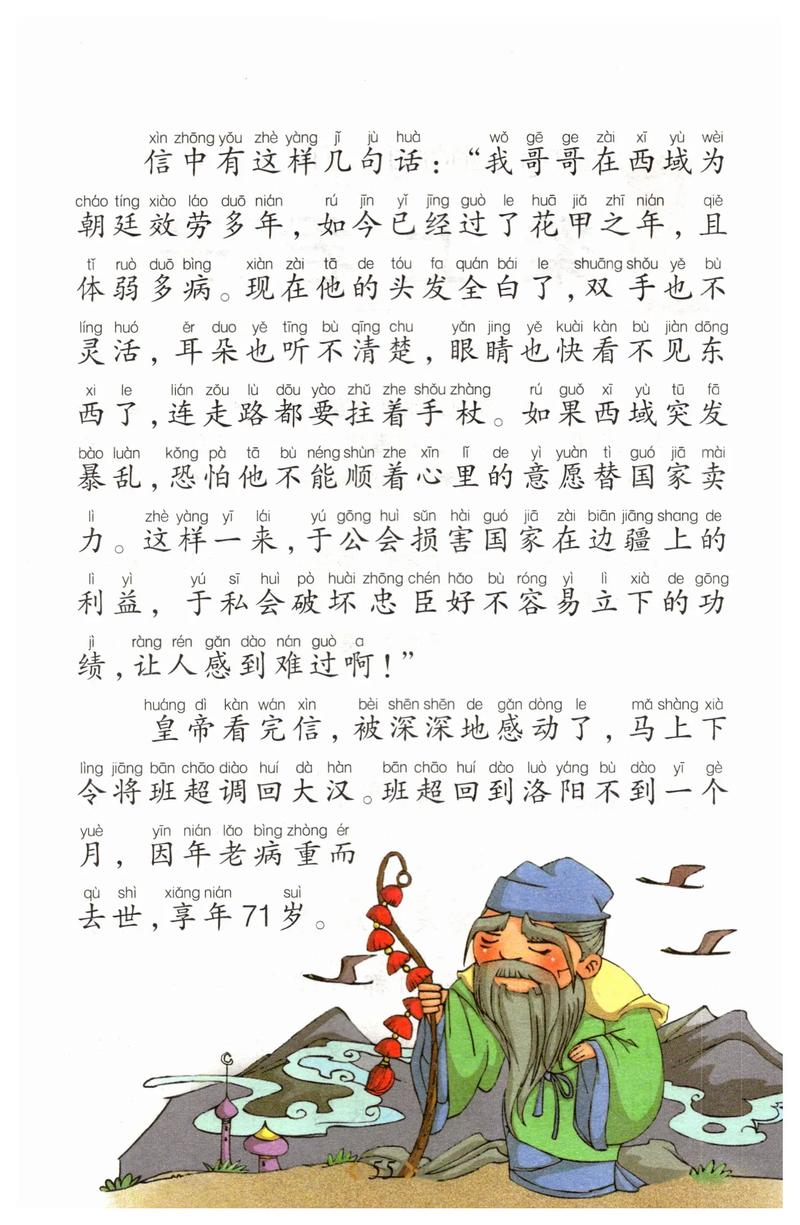 xìn zhōng yǒu zhè yàng jǐ jù huà wǒ gē ge zài xī yù wèi
信中有这样几句话：“我哥哥在西域为
cháo tíng xiào láo duō nián rú jīn yǐ jīng guò le huā jiǎ zhī nián qiě
朝廷效劳多年，如今已经过了花甲之年，且
tǐ ruò duō bìng xiàn zài tā de tóu fa quán bái le shuāng shǒu yě bù
体弱多病。现在他的头发全白了，双手也不
líng huó ěr duo yě tīng bù qīng chu yǎn jing yě kuài kàn bù jiàn dōng
灵活，耳朵也听不清楚，眼睛也快看不见东
xi le lián zǒu lù dōu yào zhǔ zhe shǒu zhàng rú guǒ xī yù tū fā
西了，连走路都要拄着手杖。如果西域突发
bào luàn kǒng pà tā bù néng shùn zhe xīn lǐ de yì yuàn tì guó jiā mài
暴乱，恐怕他不能顺着心里的意愿替国家卖
lì zhè yàng yī lái yú gōng huì sǔn hài guó jiā zài biān jiāng shang de
力。这样一来，于公会损害国家在边疆上的
lì yì yú sī huì pò huài zhōng chén hǎo bù róng yì lì xià de gōng
利益，于私会破坏忠臣好不容易立下的功
jì ràng rén gǎn dào nán guò a
绩，让人感到难过啊！”
huáng dì kàn wán xìn bèi shēn shēn de gǎn dòng le mǎ shàng xià
皇帝看完信，被深深地感动了，马上下
lìng jiāng bān chāo diào huí dà hàn bān chāo huí dào luò yáng bù dào yī gè
令将班超调回大汉。班超回到洛阳不到一个
yuè yīn nián lǎo bìng zhòng ér
月，因年老病重而
qù shì xiǎng nián suì
去世，享年71岁。
55